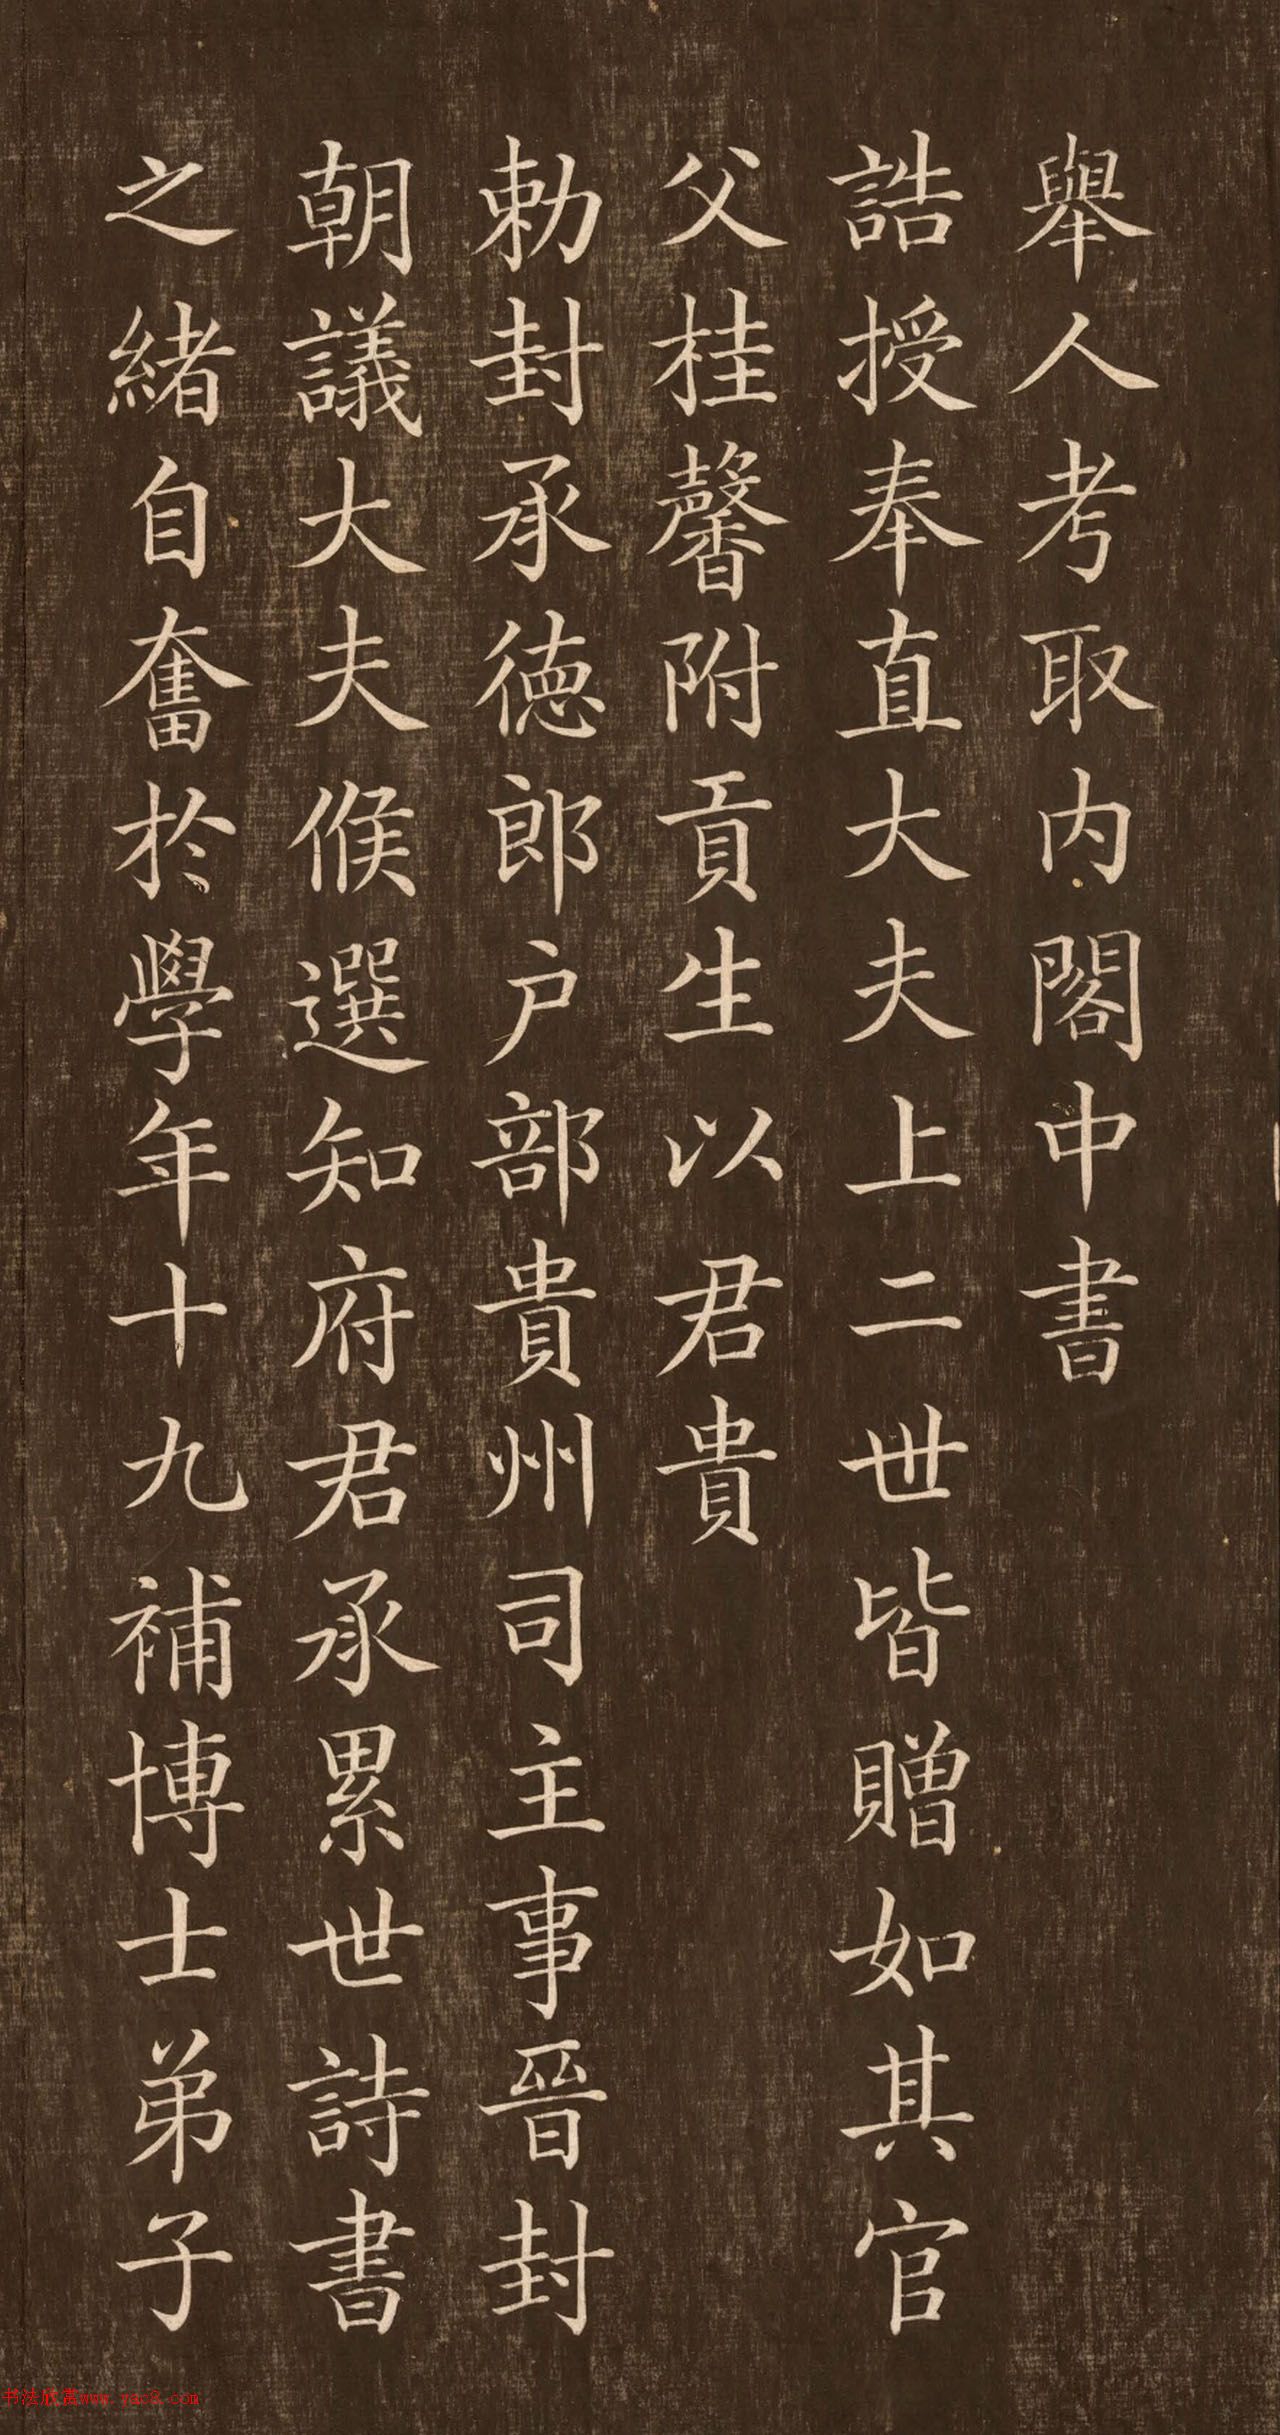 舉人考取内閣中書
誥授奉直大夫上二世皆贈如其官
父桂馨附貢生以君貴
勅封承徳郎户部貴州司主事晉封
朝議大夫候選知府君承累世詩書
之緒自奮於學年十九補博士弟子
书法欣赏www.yac8.com